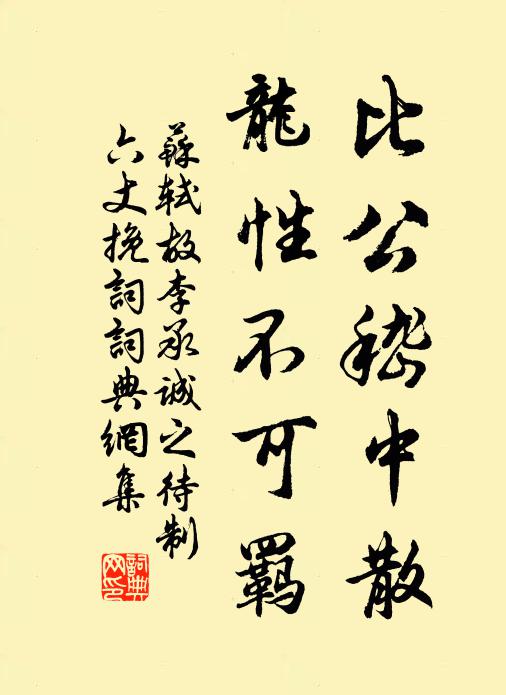 比公嵇中散
龍性不可羈
蘇軾故李承誠之待制
六丈挽詞詞典網集
詞典
网印